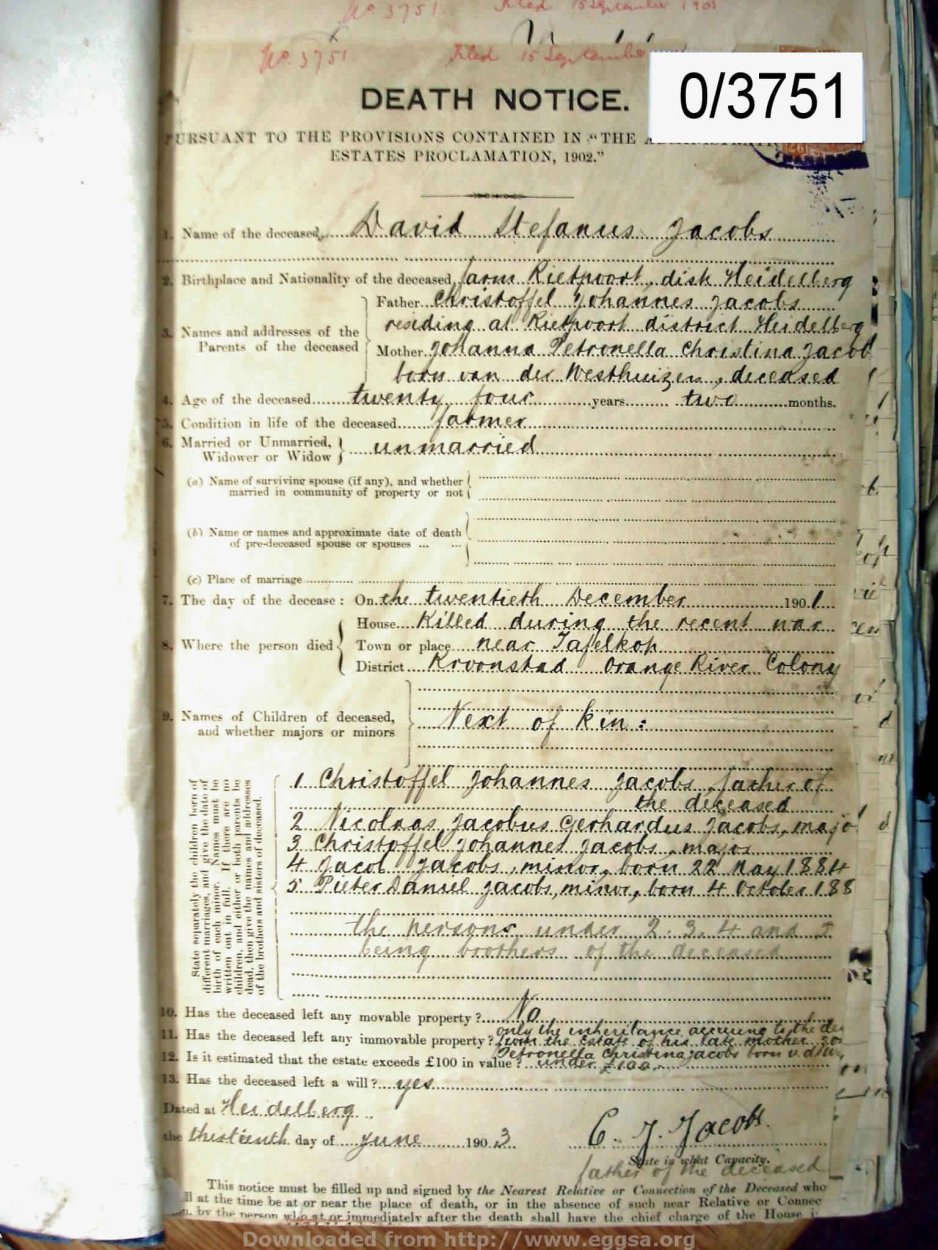 No 3751. Filed 15 September 1903
No 3751 Filed 15 September
0/3751
DEATH NOTICE.
PURSUANT TO THE PROVISIONS CONTAINED IN "THE
ESTATES PROCLAMATION, 1902."
1. Name of the deceased David Stefanus Jacobs
2. Birthplace and Nationality of the deceased, farm Rietpoort, distr Heidelberg
Father Christoffel Johannes Jacobs
3. Names and addresses of the residing at Rietpoort district Heidelberg
Parents of the deceased Mother Johanna Petronella Christina Jacob
born van der Westhuizen, deceased
4. Age of the deceased twenty four years two months.
5. Condition in life of the deceased farmer
6. Married or Unmarried, unmarried
Widower or Widow
(a) Name of surviving spouse (if any), and whether
married in community of property or not
(b) Name or names and approximate date of death
of pre-deceased spouse or spouses ... ...
(c) Place of marriage
7. The day of the decease: On the twentieth December 1901
House Killed during the recent war
8. Where the person died Town or place near Tafelkop
District Kroonstad Orange River Colony
9. Names of Children of deceased, Next of kin:
and whether majors or minors
State separately the children born of
different marriages, and give the date of
birth of each minor. Names must be
written out in full. If there are no
children and either or both parents be
dead, then give the names and addresses
of the brothers and sisters of deceased.
1 Christoffel Johannes Jacobs father of
the deceased
2 Nicolaas Jacobus Gerhardus Jacobs, major
3 Christoffel Johannes Jacobs major
4 Jacob Jacobs, minor, born 22 May 1884
5 Pieter Daniel Jacobs, minor, born 4 October 188
the persons under 2. 3. 4 and 5
being brothers of the deceased
10. Has the deceased left any movable property? No
only the inheritance accruing to the de
11. Has the deceased left any immovable property? from the Estate of his late mother Jo
Petronella Christina Jacobs born v d W
12. Is it estimated that the estate exceeds £100 in value? under £100
13. Has the deceased left a will? yes
Dated at Heidelberg
the thirteenth day of June 1903 C. J. Jacobs
State in what Capacity.
father of the deceased
This notice must be filled up and signed by the Nearest Relative or Connection of the Deceased who
ll at the time be at or near the place of death, or in the absence of such near Relative or Connec
n, by the person who at or immediately after the death shall have the chief charge of the House i
Downloaded from http://www.eggsa.org